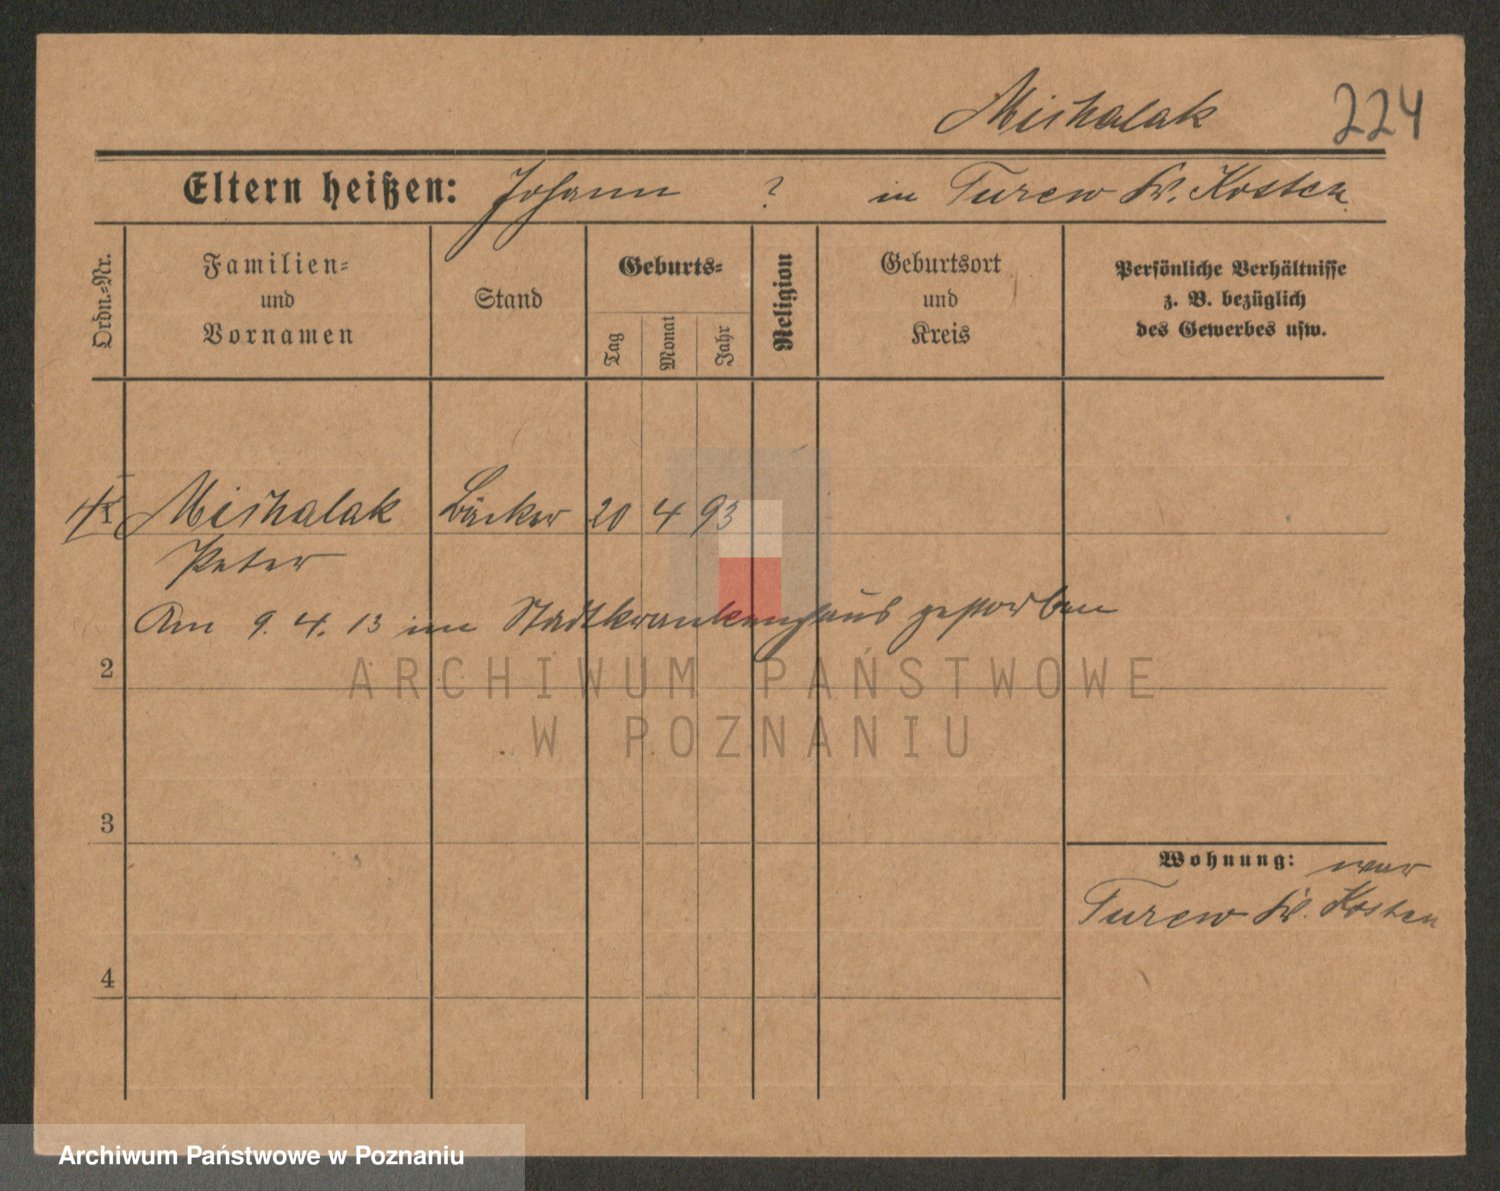 Michalak 224
Eltern heißen: Johann ? in Turew Kr. Kosten
Ordn.-Nr.
Familien-
und
Vornamen
Stand
Geburts-
Tag
Monat
Jahr
Religion
Geburtsort
und
Kreis
Persönliche Verhältnisse
z. B. bezüglich
des Gewerbes usw.
1 Michalak Bäcker 20 4 93
Peter
Am 9. 4. 13 im Stadtkrankenhaus gestorben
2
ARCHIWUM PAŃSTWOWE
W POZNANIU
3
Wohnung: war
Turew Kr. Kosten
4
Archiwum Państwowe w Poznaniu